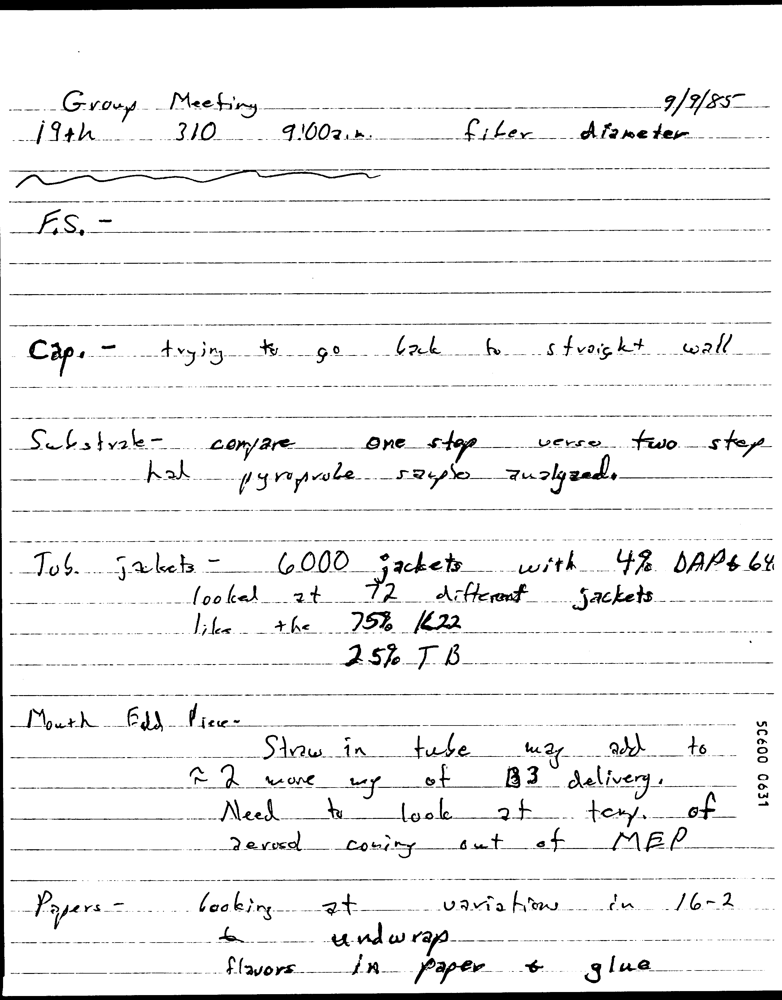 Group Meeting 9/9/85
19th 310 9:00a.m. fiber diameter
F.S. -
Cap. - trying to go back to straight wall
Substrate - compare one step verse two step
had pyroprobe samples analyzed.
Tob. jackets - 6000 jackets with 4% DAP &
looked at 72 different jackets
like the 75% K22
25% TB
Mouth End Piece -
Straw in tube may add to
≈ 2 more mg of B3 delivery.
Need to look at temp. of
aerosol coming out of MEP
Papers - looking at variations in 16-2
& undwrap
flavors in paper & glue
50600 0631